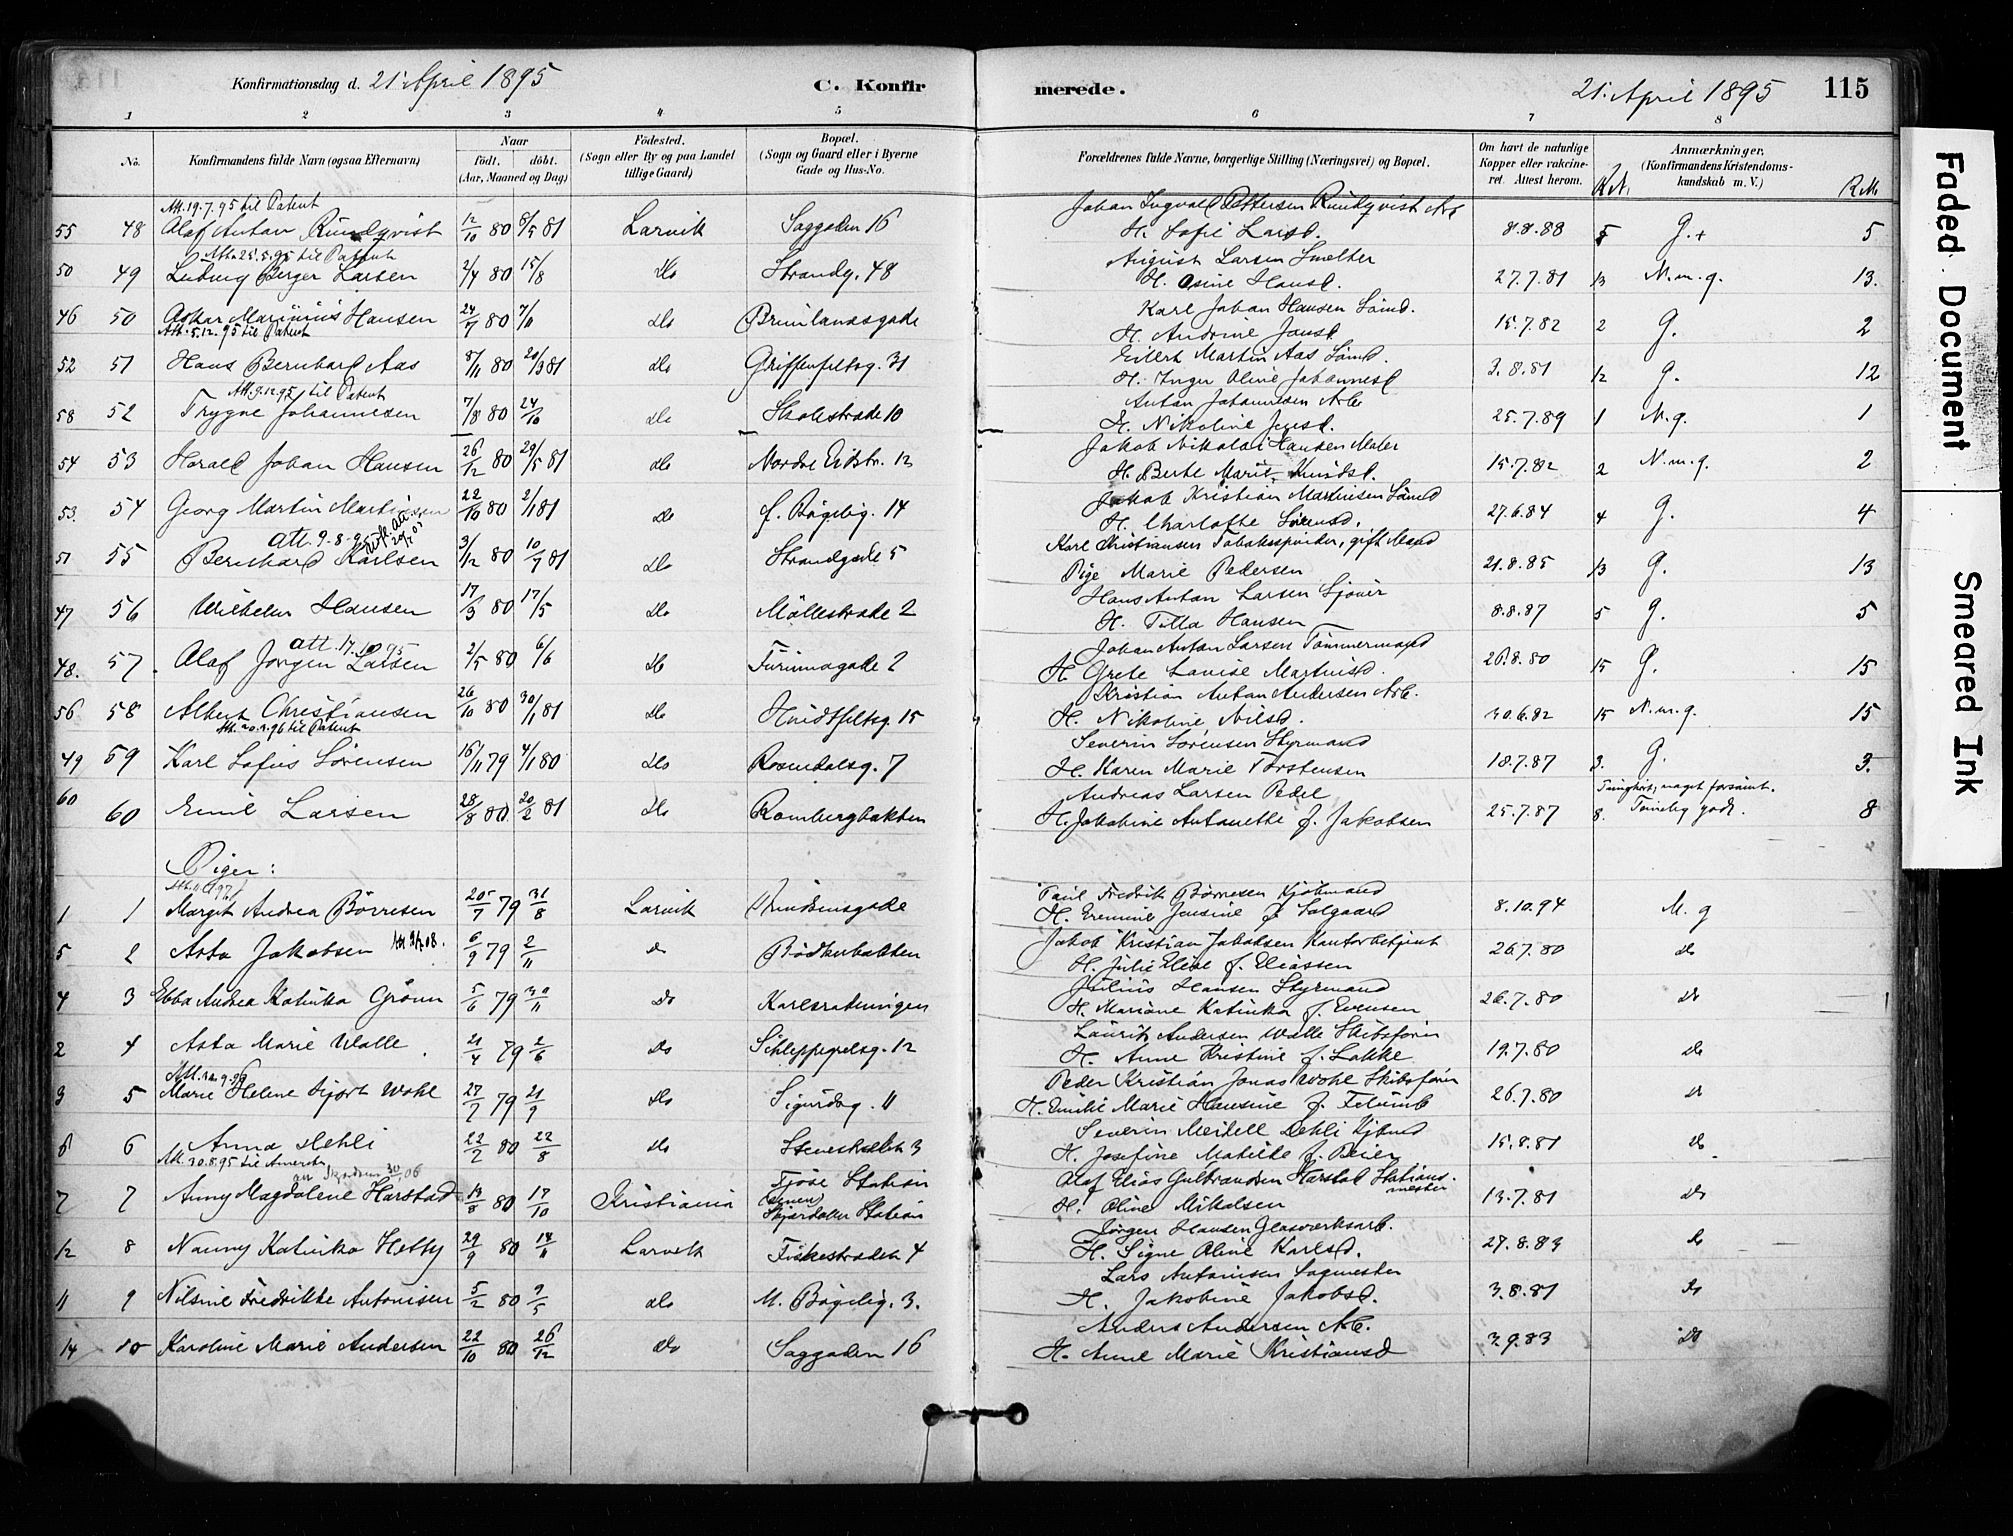 Konfirmationsdag d. 21. April 1895
C. Konfirmerede.
21. April 1895
115
1 2 3 4 5 6 7 8
No.
Konfirmandens fulde Navn (ogsaa Efternavn)
Naar
født. døbt.
(Aar, Maaned og Dag)
Fødested.
(Sogn eller By og paa Landet tillige Gaard)
Bopæl.
(Sogn og Gaard eller i Byerne Gade og Hus-No.
Forældrenes fulde Navne, borgerlige Stilling (Næringsvei) og Bopæl.
Om havt de naturlige Kopper eller vakcineret. Attest herom.
Anmærkninger.
(Konfirmandens Kristendomskundskab m. V.)
Att. 19.7.95 til Patent
55 48 Olaf Anton Rundqvist 12/10 80 8/5 81 Larvik Saggaden 16 Johan Ingvald Pettersen Rundqvist Arb. H. Sofie Larsd. 8.8.88 5 G.+ 5
Att. 25.5.95 til Patent
50 49 Ludvig Berger Larsen 2/4 80 15/8 do Strandg. 48 August Larsen Smelter H. Osine Hansd. 27.7.81 13 N.m.g. 13.
46 50 Oskar Marinius Hansen 24/7 80 7/11 do Brunlanasgade Karl Johan Hansen Sömd. H. Andrine Jansd. 15.7.82 2 G. 2
Att. 5.12.95 til Patent
52 51 Hans Bernhard Aas 8/11 80 20/3 81 do Griffenfeltsg. 31 Eilert Martin Aas Sömd. H. Inger Oline Johannesd. 3.8.81 12 G. 12
Att. 9.12.95 til Patent
58 52 Trygve Johannesen 7/8 80 24/10 do Skolestræde 10 Anton Johannesen Arb. H. Nikoline Jensd. 25.7.89 1 M.g. 1
54 53 Harald Johan Hansen 26/12 80 29/5 81 do Nordre Eidstr. 12 Jakob Nikolai Hansen Maler H. Berte Marie Knudsd. 15.7.82 2 N.m.g. 2
53. 54 Georg Martin Martinsen 22/10 80 2/1 81 do f. Bögelig. 14 Jakob Kristian Martinsen Sömd H. Charlotte Sörensd. 27.6.84 4 G. 4
att. 9.8.95
51 55 Bernhard Karlsen 3/12 80 10/7 81 do Strandgade 5 Karl Christiansen Tobaksspinder, gift Mand Pige Marie Pedersen 21.8.85 13 G. 13
47 56 Wilhelm Hansen 17/3 80 17/5 do Möllestræde 2 Hans Anton Larsen Sjöner H. Tilla Hansen 8.8.87 5 G. 5
att. 17.10.95
48. 57. Olaf Jörgen Larsen 2/5 80 6/6 do Furumogade 2 Johan Anton Larsen Tömmermand H. Grete Lovise Martinsd. 26.8.80 15 G. 15
56 58 Albert Christiansen 26/10 80 30/1 81 do Hvidtfeltsg. 15 Kristian Anton Andersen Arb. H. Nikoline Nilsd. 30.6.82 15 N.m.g. 15
til Patent
49 59 Karl Sofus Sörensen 16/11 79 4/1 80 do Rosendalsg. 7 Severin Sörensen Styrmand H. Karen Marie Torstensen 18.7.87 3. G. 3.
60 60 Emil Larsen 28/8 80 20/2 81 do Rombergbakken Andreas Larsen Pedel H. Jakobine Antonette f. Jakobsen 25.7.87 8. 8
Piger:
1 1 Margit Andrea Börresen 25/7 79 31/8 Larvik Paul Fredrik Börresen Kjöbmand H. Jensine f. Solgaard 8.10.94 M.g
5 2 Asta Jakobsen 6/9 79 2/11 do Bödkerbakken Jakob Kristian Jakobsen Kontorbetjent H. Julie Elise f. Eliassen 26.7.80 do
4 3 Ebba Andrea Katinka Grönn 5/6 79 30/11 do Julius Hansen Styrmand H. Mariane Katinka f. Evensen 26.7.80 do
2 4 Asta Marie Walle 21/4 79 2/6 do Schleppegrelsg. 12 Laurits Andersen Walle Skibsförer H. Anne Kristine f. Lokke 19.7.80 do
3 5 Marie Helene Hjort Wohl 27/7 79 21/9 do Sigurdsg. 11 Peder Kristian Jonas Wohl Skibsförer H. Emilie Marie Hansine f. 26.7.80 do
6 6 Anna Dehli 22/2 80 22/8 do 3 Severin Meidell Dehli Kjöbmd H. Josefine Matilde f. Beier 15.8.81 do.
Att. 30.8.95 til Amerika
7 7 Anny Magdalene Harstad 14/8 80 17/10 Kristiania Tjöse Station Skjærdalen Station Olaf Elias Gulbrandsen Harstad Stationsmester H. Oline Mikalsen 13.7.81 do
12 8 Nanny Katinka Hetty 29/9 80 14/11 Larvik Fiskestræde 4 Jörgen Hansen Glasværksarb. H. Signe Oline Karlsd. 27.8.83 do
11 9 Nilsine Fredrikke Antonisen 5/2 80 9/5 do M. Bögelig. 3. Lars Antonisen Sagmester H. Jakobine Jakobsd. 3.8.81 do
14 10 Karoline Marie Andersen 22/10 80 26/12 do Saggaden 16 Anders Andersen Arb. H. Anne Marie Kristiansd 3.9.83 do
Faded Document
Smeared Ink